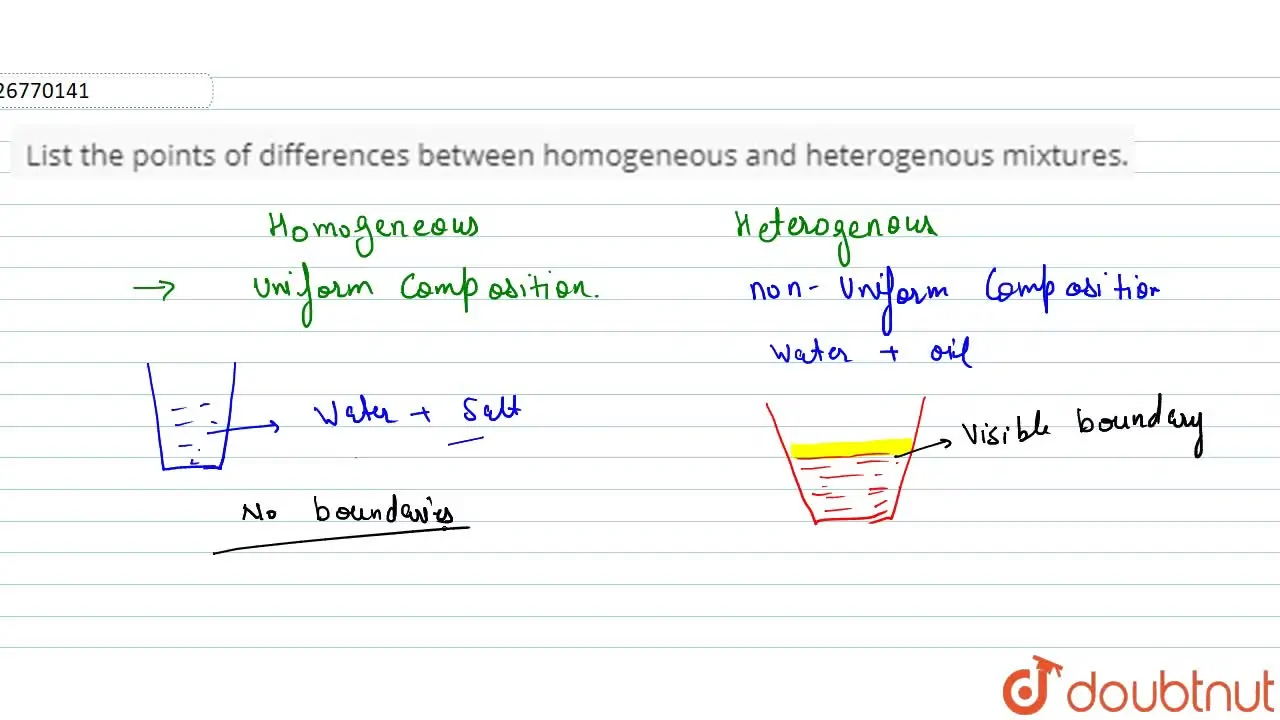 26770141
List the points of differences between homogeneous and heterogenous mixtures.
Homogeneous
Heterogenous
→ Uniform Composition.
non-Uniform Composition
Water + oil
Water + Salt
Visible boundary
No boundaries
doubtnut